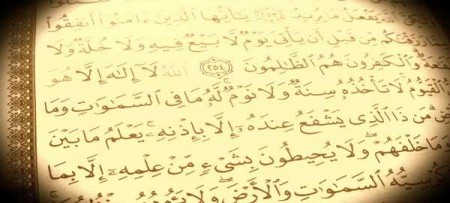 اللَّهَ يَفْعَلُ مَا يُرِيدُ ٢٥٣ يَٰٓأَيُّهَا ٱلَّذِينَ ءَامَنُوٓا۟ أَنفِقُوا۟
رَزَقْنَٰكُم مِّن قَبْلِ أَن يَأْتِىَ يَوْمٌ لَّا بَيْعٌ فِيهِ وَلَا خُلَّةٌ وَلَا
وَٱلْكَٰفِرُونَ هُمُ ٱلظَّٰلِمُونَ ٢٥٤ ٱللَّهُ لَآ إِلَٰهَ إِلَّا هُوَ
ٱلْقَيُّومُ لَا تَأْخُذُهُۥ سِنَةٌ وَلَا نَوْمٌ لَّهُۥ مَا فِى ٱلسَّمَٰوَٰتِ وَمَا
مَن ذَا ٱلَّذِى يَشْفَعُ عِندَهُۥٓ إِلَّا بِإِذْنِهِۦ يَعْلَمُ مَا بَيْنَ
وَمَا خَلْفَهُمْ وَلَا يُحِيطُونَ بِشَىْءٍ مِّنْ عِلْمِهِۦٓ إِلَّا بِمَا
ٱلسَّمَٰوَٰتِ وَٱلْأَرْضَ وَلَا